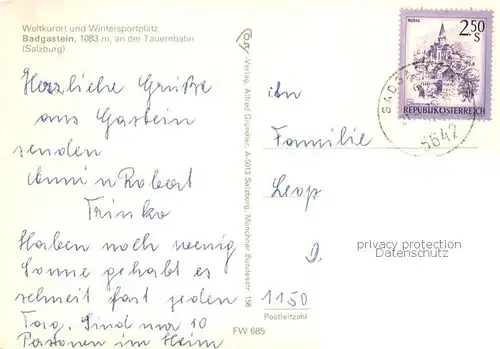 Weltkurort und Wintersportplatz
Badgastein, 1083 m, an der Tauernbahn
(Salzburg)
Herzliche Grüße
aus Gastein
senden
Anni u Robert
Trinko
Haben noch wenig
Sonne gehabt es
schneit fast jeden
Tag. Sind nur 10
Personen im Heim
Cosy-Verlag, Alfred Gründler, A-5013 Salzburg, Münchner Bundesstr. 156
FW 685
MURAU
2.50
S
REPUBLIK ÖSTERREICH
5642
Familie
Leop
1150
Postleitzahl
privacy protection
Datenschutz